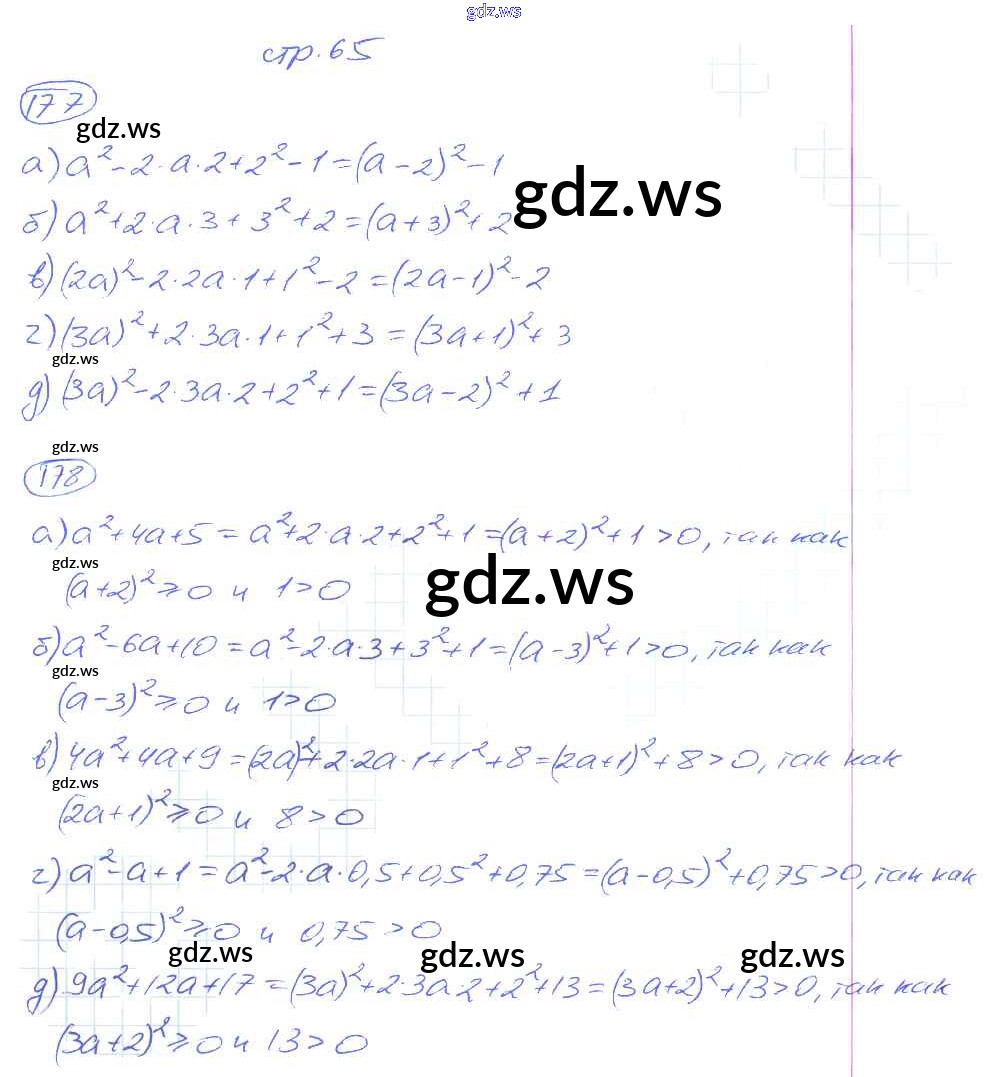 gdz.ws
стр. 65
177
gdz.ws
а) a² - 2·a·2 + 2² - 1 = (a - 2)² - 1
gdz.ws
б) a² + 2·a·3 + 3² + 2 = (a + 3)² + 2
в) (2a)² - 2·2a·1 + 1² - 2 = (2a - 1)² - 2
г) (3a)² + 2·3a·1 + 1² + 3 = (3a + 1)² + 3
gdz.ws
д) (3a)² - 2·3a·2 + 2² + 1 = (3a - 2)² + 1
gdz.ws
178
а) a² + 4a + 5 = a² + 2·a·2 + 2² + 1 = (a + 2)² + 1 > 0, так как
gdz.ws
gdz.ws
(a + 2)² ≥ 0 и 1 > 0
б) a² - 6a + 10 = a² - 2·a·3 + 3² + 1 = (a - 3)² + 1 > 0, так как
gdz.ws
(a - 3)² ≥ 0 и 1 > 0
в) 4a² + 4a + 9 = (2a)² + 2·2a·1 + 1² + 8 = (2a + 1)² + 8 > 0, так как
gdz.ws
(2a + 1)² ≥ 0 и 8 > 0
г) a² - a + 1 = a² - 2·a·0,5 + 0,5² + 0,75 = (a - 0,5)² + 0,75 > 0, так как
(a - 0,5)² ≥ 0 и 0,75 > 0
gdz.ws gdz.ws gdz.ws
д) 9a² + 12a + 17 = (3a)² + 2·3a·2 + 2² + 13 = (3a + 2)² + 13 > 0, так как
(3a + 2)² ≥ 0 и 13 > 0